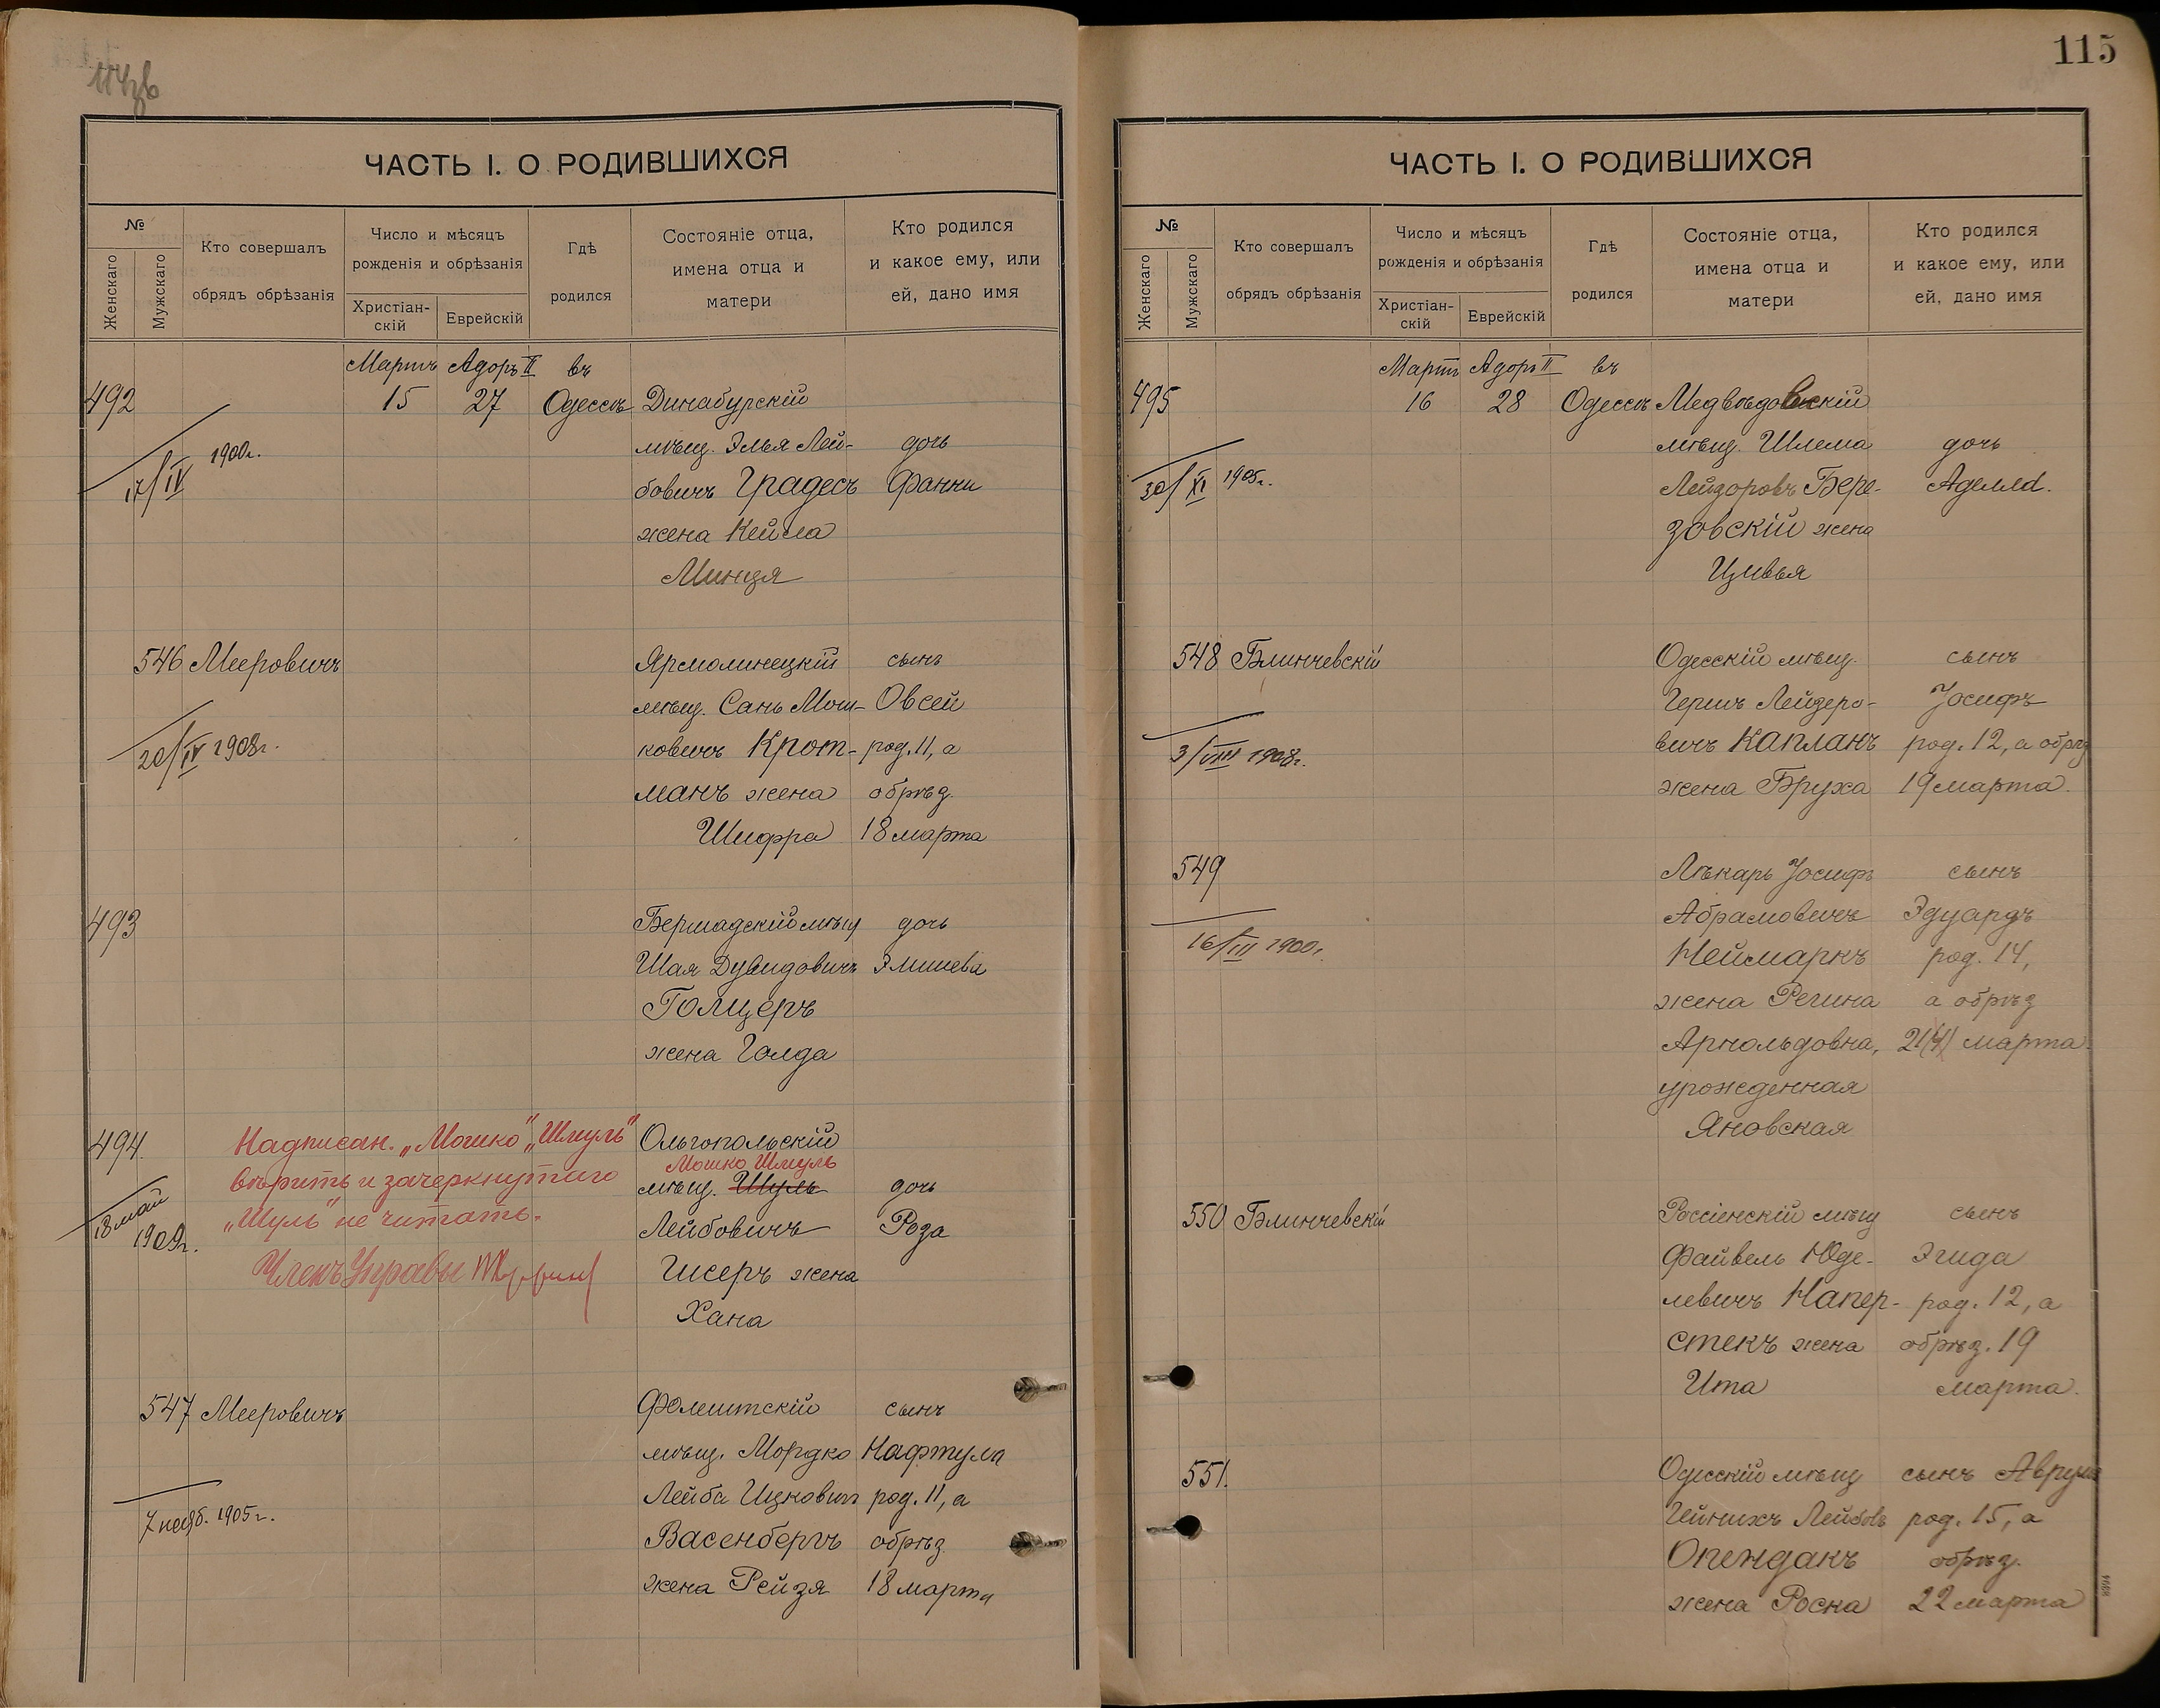 115
ЧАСТЬ I. О РОДИВШИХСЯ
№
Женскаго
Мужскаго
Кто совершалъ
обрядъ обрѣзанія
Число и мѣсяцъ
рожденія и обрѣзанія
Христіан-
скій
Еврейскій
Гдѣ
родился
Состояніе отца,
имена отца и
матери
Кто родился
и какое ему, или
ей, дано имя
Мартъ Адоръ II въ
492 15 27 Одессѣ Динабурскій
мѣщ. Элья Лей- дочь
17/IV 1900г.
бовичъ Градесъ Фанни
жена Кейла
Минця
546 Мееровичъ Ярмолинецкій сынъ
мѣщ. Сань Мош- Овсей
20/IV 1908г.
ковичъ Крот- род. 11, а
манъ жена обрѣз.
Шифра 18 марта
493 Бершадскій мѣщ дочь
Шая Дувидовичъ Элишева
Голцеръ
жена Голда
494. Надписан. „Мошко" „Шмуль" Ольгопольскій
Мошко Шмуль
вѣрить и зачеркнутаго мѣщ. Шуль дочь
„Шуль" не читать. Лейбовичъ Роза
18 май 1909г.
Членъ Управы Гисеръ жена
Хана
547 Мееровичъ Фолештскій сынъ
мѣщ. Мордко Нафтула
Лейба Ицковичъ род. 11, а
7 нояб. 1905г.
Васенбергъ обрѣз
жена Рейзя 18 марта
ЧАСТЬ I. О РОДИВШИХСЯ
№
Женскаго
Мужскаго
Кто совершалъ
обрядъ обрѣзанія
Число и мѣсяцъ
рожденія и обрѣзанія
Христіан-
скій
Еврейскій
Гдѣ
родился
Состояніе отца,
имена отца и
матери
Кто родился
и какое ему, или
ей, дано имя
Мартъ Адоръ II въ
495 16 28 Одессѣ Медвѣдовскій
мѣщ. Шлема дочь
30/XI 1905г.
Лейзоровъ Бере- Аделла.
зовскій жена
Цивья
548 Блинчевскій Одесскій мѣщ. сынъ
Гершъ Лейзеро- Іосифъ
3/VIII 1908г.
вичъ Капланъ род. 12, а обрѣз
жена Бруха 19 марта.
549 Лѣкарь Іосифъ сынъ
Абрамовичъ Эдуардъ
16/III 1900г.
Неймаркъ род. 14,
жена Регина а обрѣз
Арнольдовна, 21 марта.
урожденная
Яновская
550 Блинчевскій Россіенскій мѣщ сынъ
Файвель Юде- Эгида
левичъ Напер- род. 12, а
стекъ жена обрѣз. 19
Ита марта.
551. Одесскій мѣщ сынъ Аврумъ
Гейнихъ Лейбовъ род. 15, а
Опендакъ обрѣз.
жена Роска 22 марта